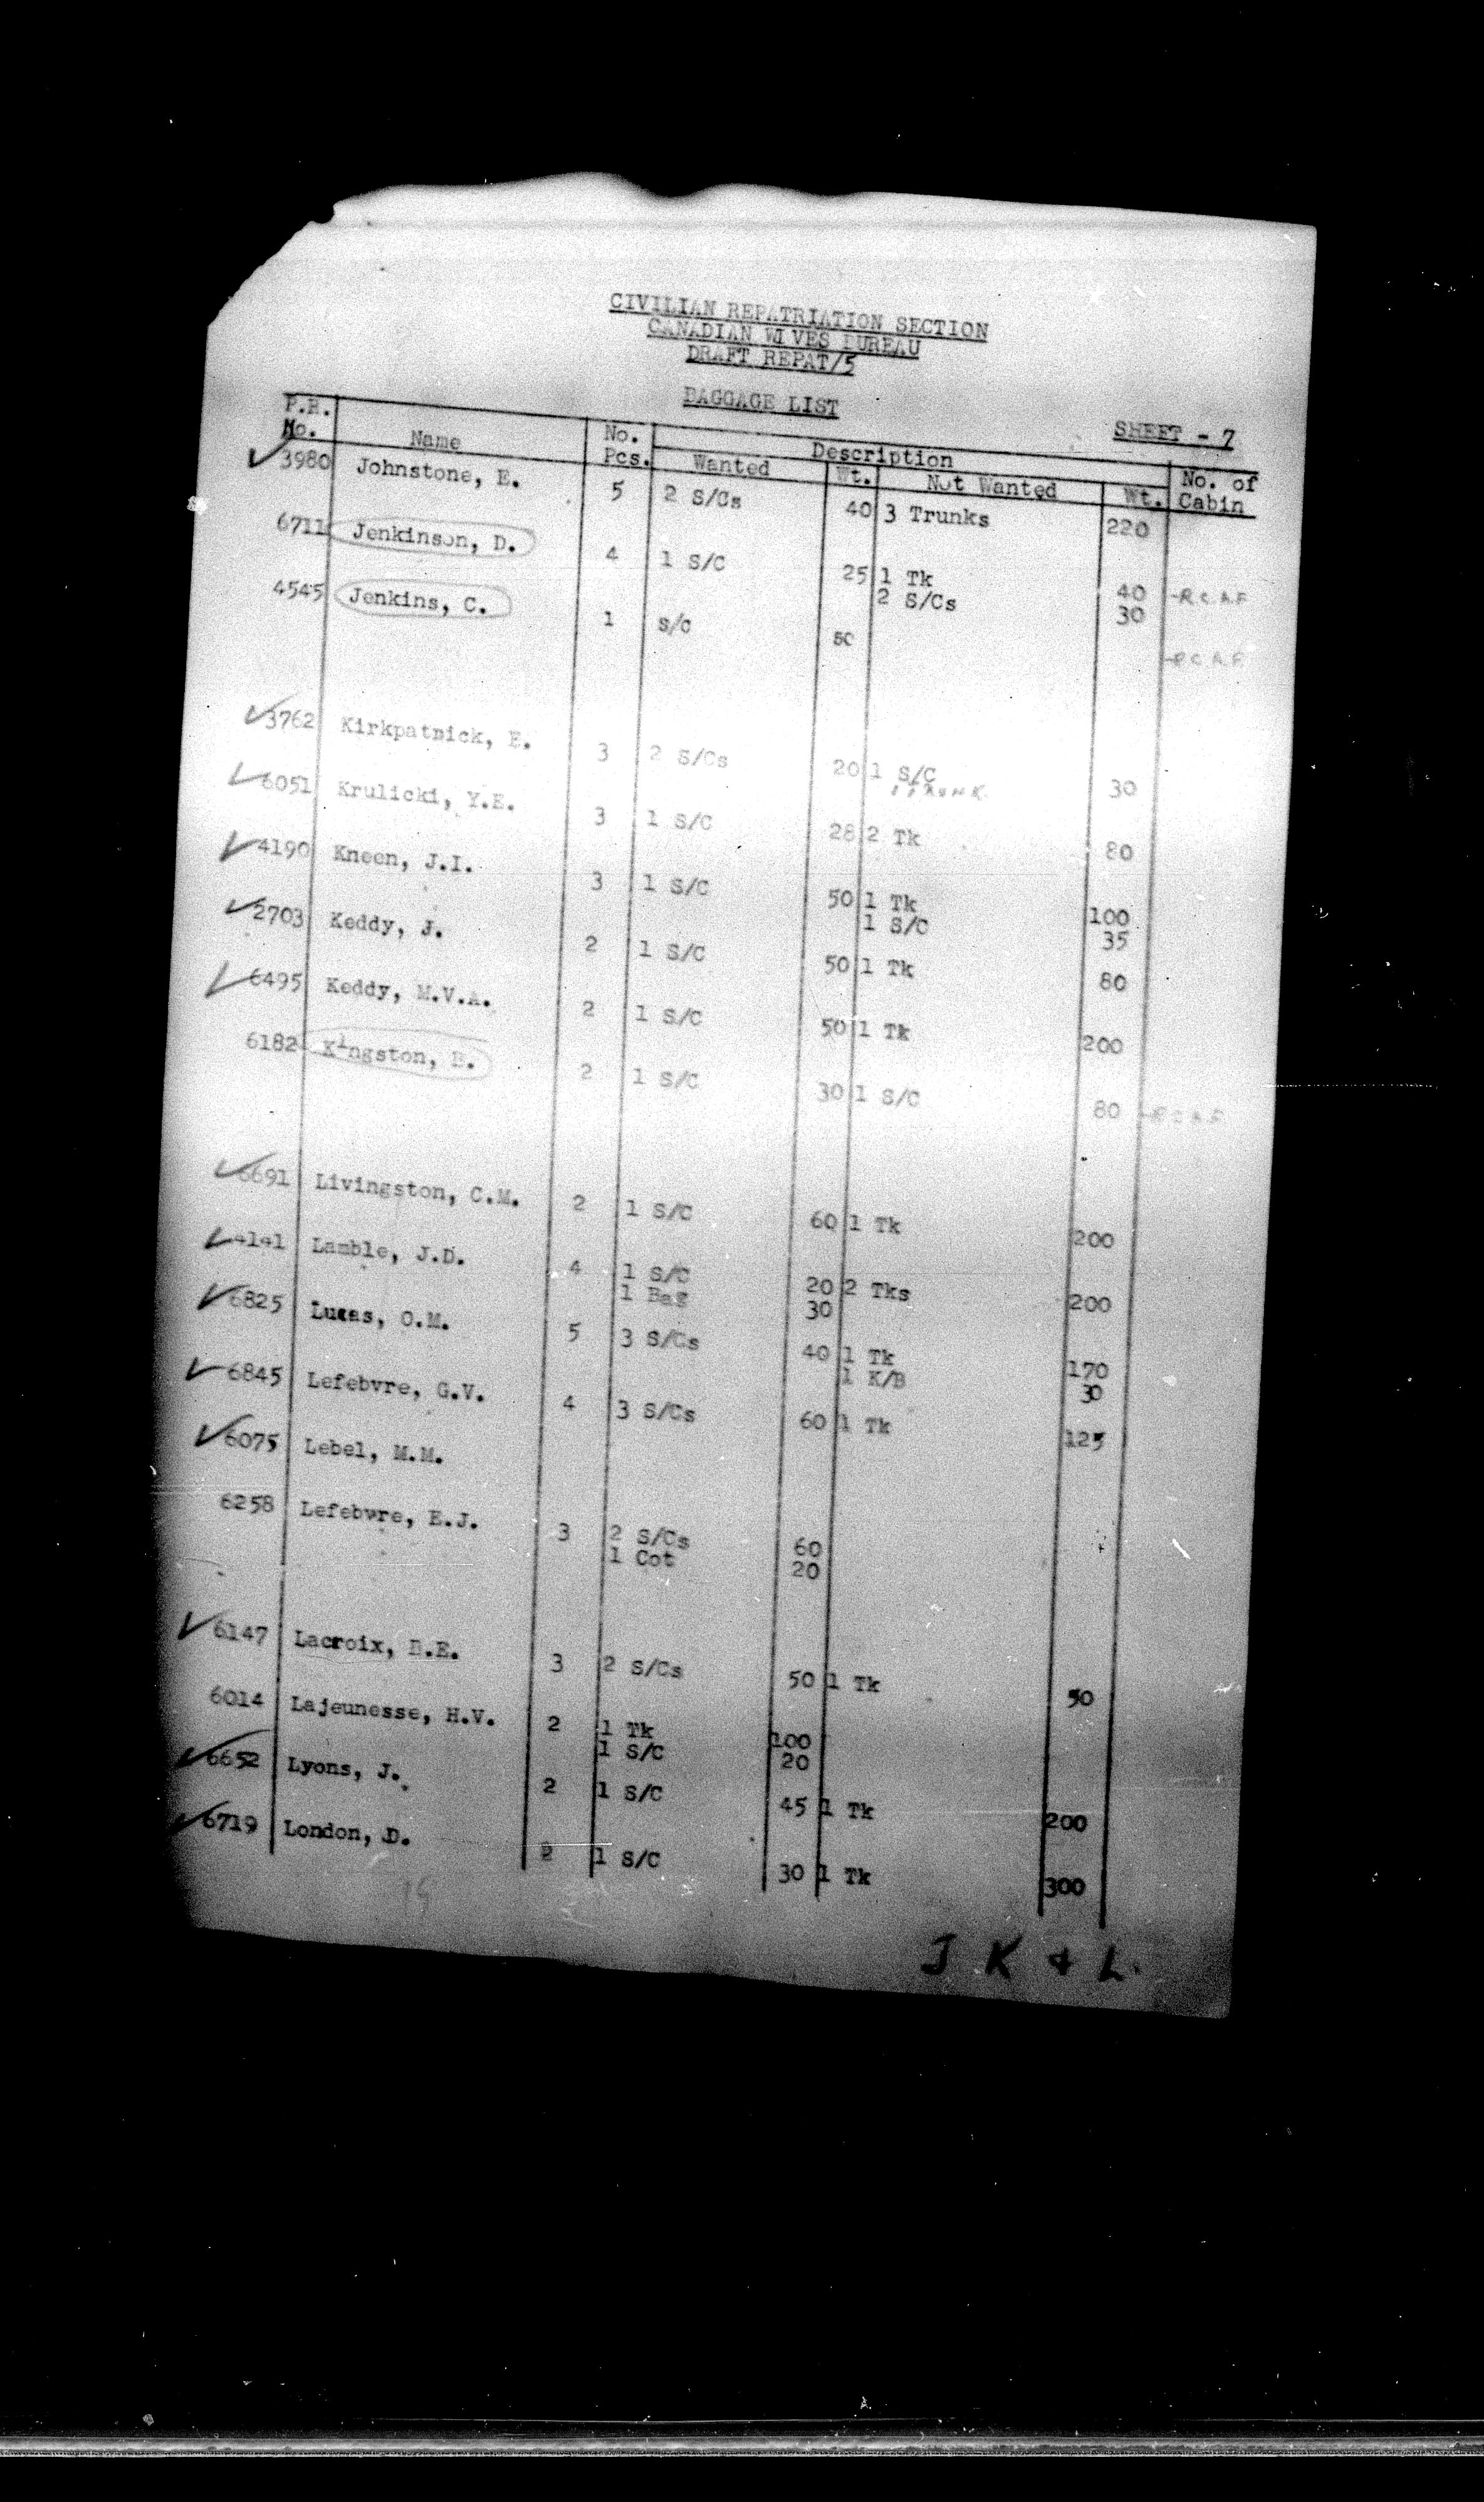 CIVILIAN REPATRIATION SECTION
CANADIAN WIVES BUREAU
DRAFT REPAT/5
BAGGAGE LIST
SHEET - 7
P.R. No. Name No. Pcs. Description No. of Cabin
Wanted Wt. Not Wanted Wt.
3980 Johnstone, E. 5 2 S/Cs 40 3 Trunks 220
6711 Jenkinson, D. 4 1 S/C 25 1 Tk 40 - R.C.A.F
2 S/Cs 30
4545 Jenkins, C. 1 S/C 50 - R.C.A.F
3762 Kirkpatrick, E. 3 2 S/Cs 20 1 S/C 30
1 TRUNK
6051 Krulicki, Y.E. 3 1 S/C 28 2 Tk 80
4190 Kneen, J.I. 3 1 S/C 50 1 Tk 100
1 S/C 35
2703 Keddy, J. 2 1 S/C 50 1 Tk 80
6495 Keddy, M.V.A. 2 1 S/C 50 1 Tk 200
6182 Kingston, E. 2 1 S/C 30 1 S/C 80 - R.C.A.F.
6691 Livingston, C.M. 2 1 S/C 60 1 Tk 200
4141 Lamble, J.D. 4 1 S/C 20 2 Tks 200
1 Bag 30
6825 Lucas, O.M. 5 3 S/Cs 40 1 Tk 170
1 K/B 30
6845 Lefebvre, G.V. 4 3 S/Cs 60 1 Tk 125
6075 Lebel, M.M.
6258 Lefebvre, E.J. 3 2 S/Cs 60
1 Cot 20
6147 Lacroix, B.E. 3 2 S/Cs 50 1 Tk 50
6014 Lajeunesse, H.V. 2 1 Tk 100
1 S/C 20
6652 Lyons, J. 2 1 S/C 45 1 Tk 200
6719 London, D. 2 1 S/C 30 1 Tk 300
19
J K & L.